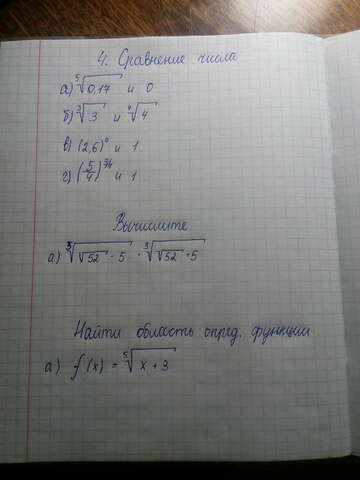 4. Сравнение числа
а) ⁵√0,17 и 0
б) ³√3 и ⁴√4
в) (2,6)⁰ и 1
г) (5/4)^3/4 и 1
Вычислите
а) ³√(√52 - 5) · ³√(√52 + 5)
Найти область опред. функции
а) f(x) = ⁵√(x + 3)